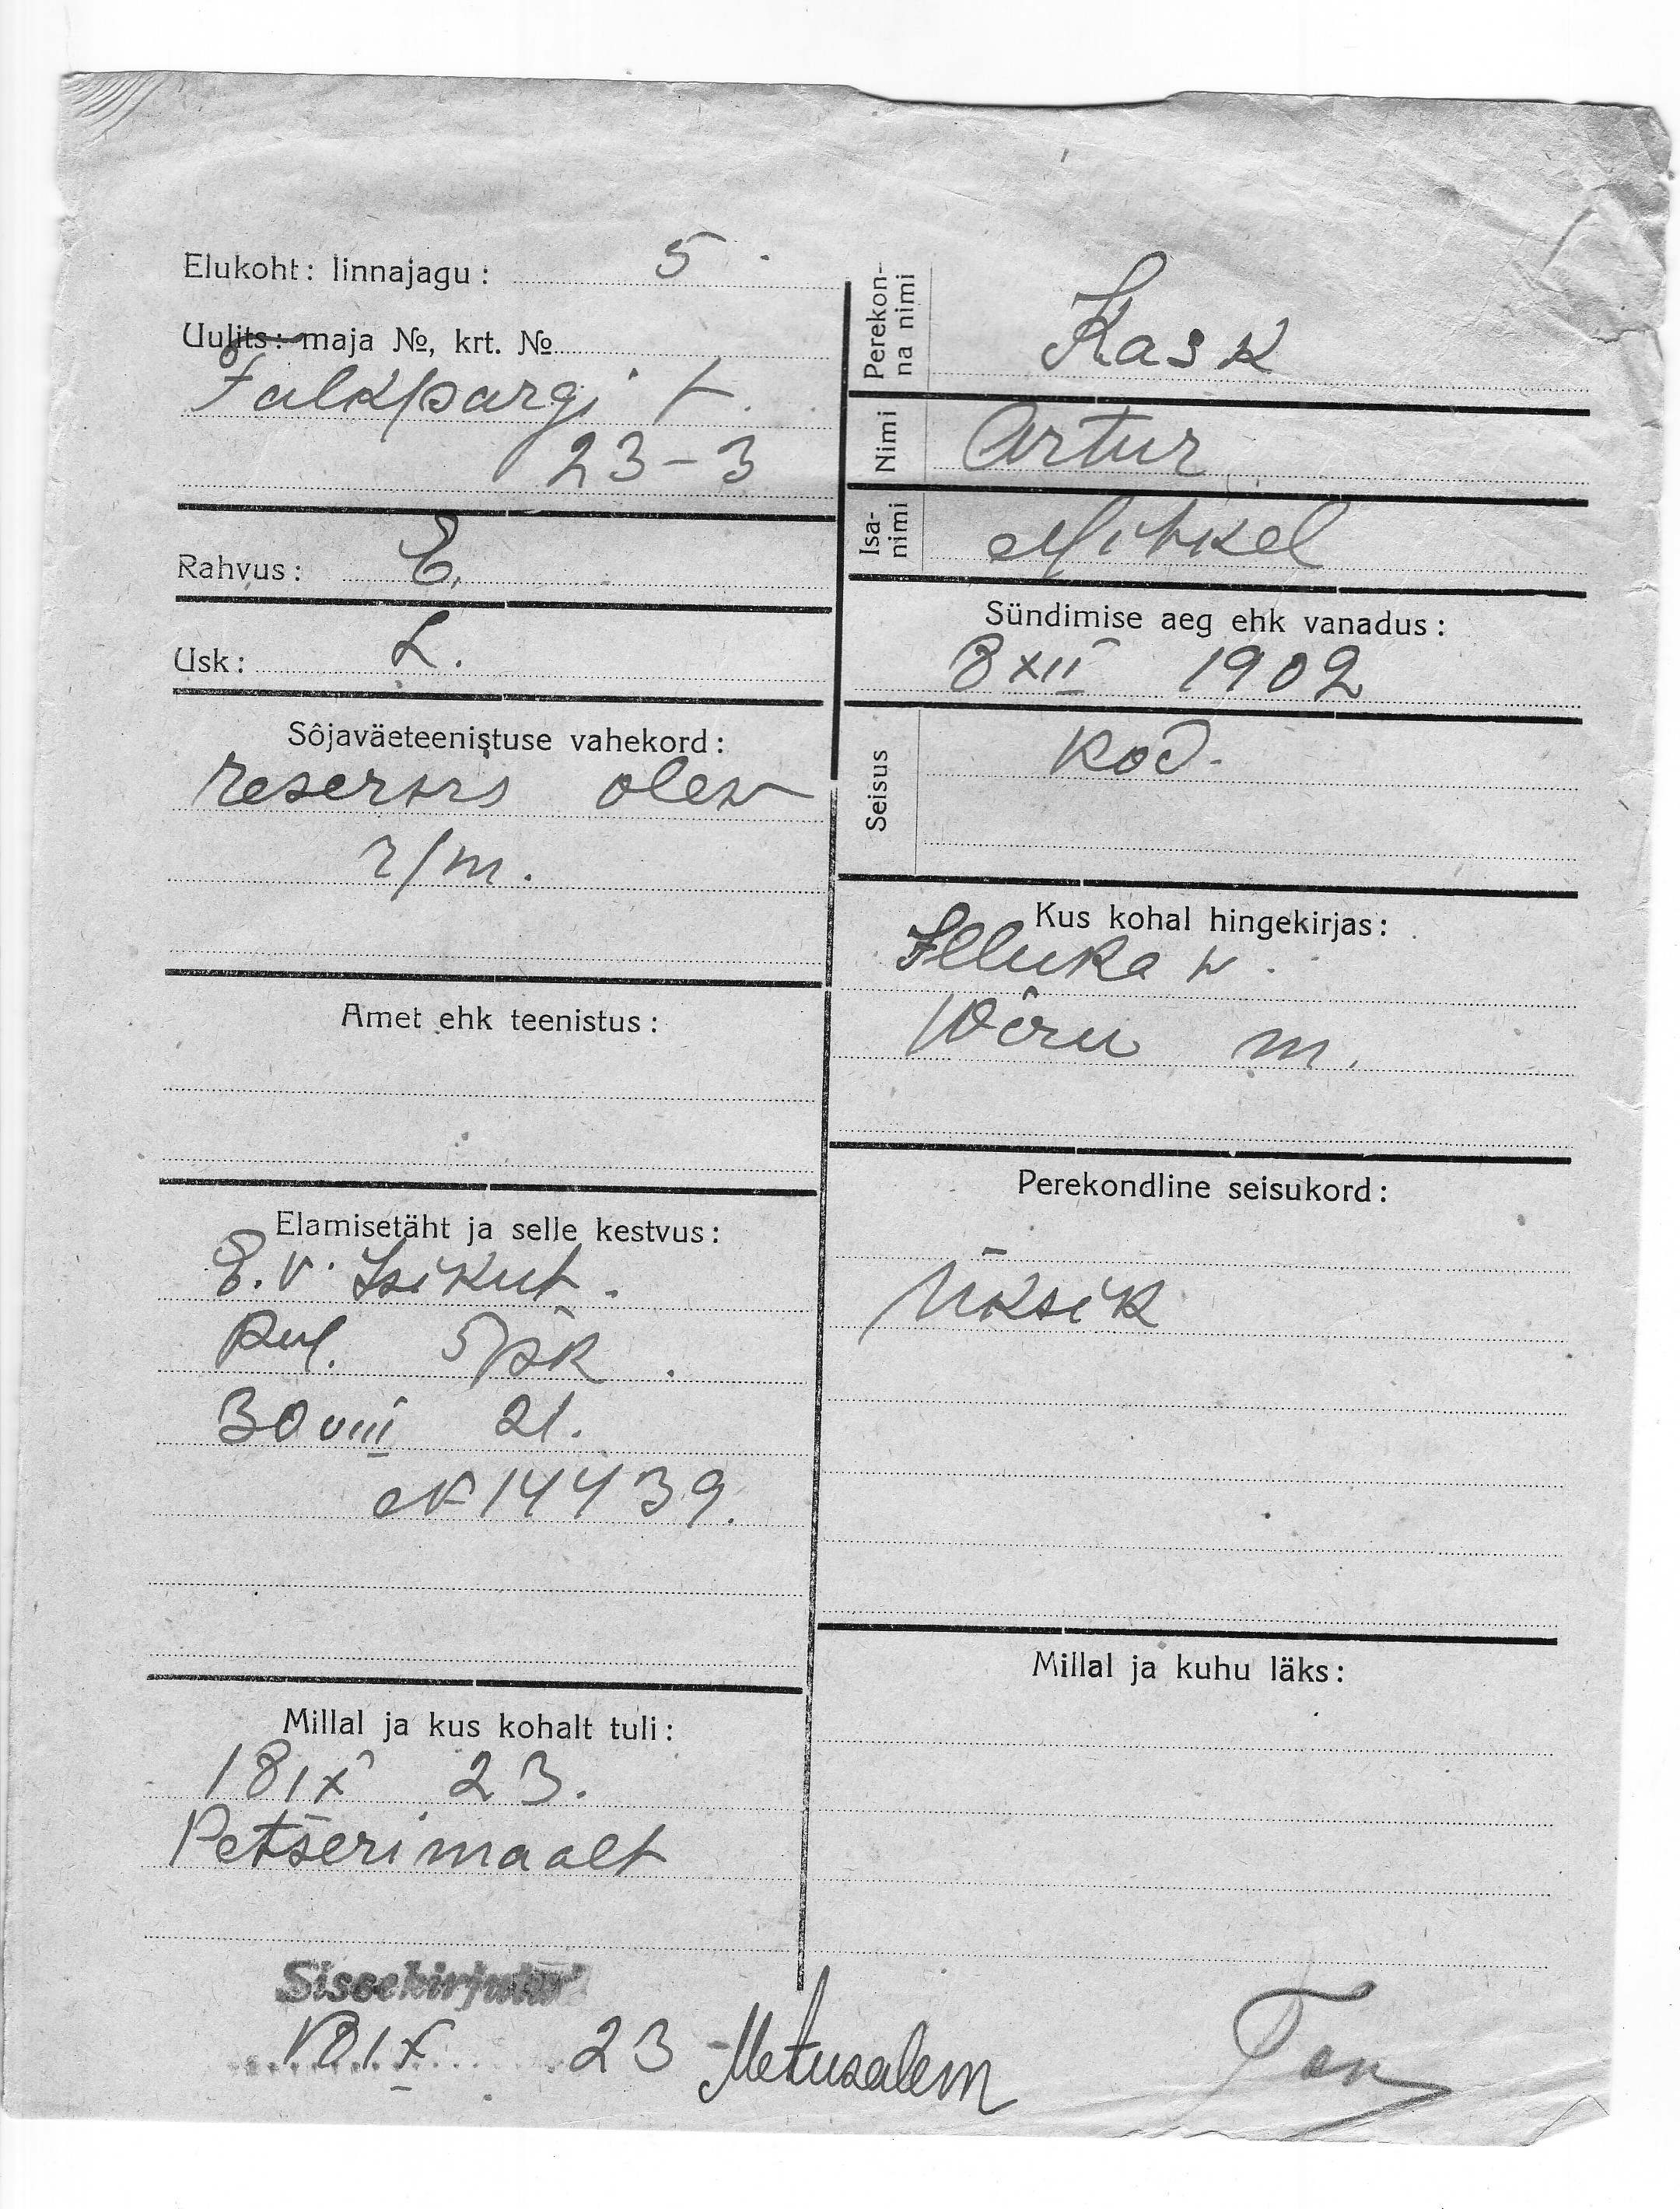 Elukoht: linnajagu: 5.
Uulits: maja №, krt. №
Falkpargi t.
23-3
Rahvus: E.
Usk: L.
Sôjaväeteenistuse vahekord:
reservis olew
r/m.
Amet ehk teenistus:
Elamisetäht ja selle kestvus:
E.V. Isikut.
5 pk.
30 VIII 21.
N 14439.
Millal ja kus kohalt tuli:
18 IX 23.
Petserimaalt
Sissekirjutatud
18 IX 23 Metusalem
Perekon-
na nimi Kask
Nimi Artur
Isa-
nimi Mihkel
Sündimise aeg ehk vanadus:
8 XII 1902
Seisus kod.
Kus kohal hingekirjas:
Illuka w.
Wõru m.
Perekondline seisukord:
Üksik
Millal ja kuhu läks: